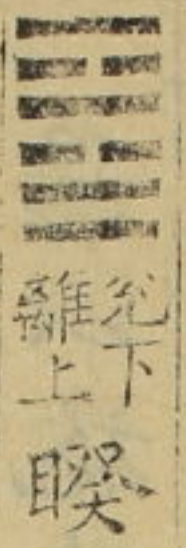 兊下
離上
睽